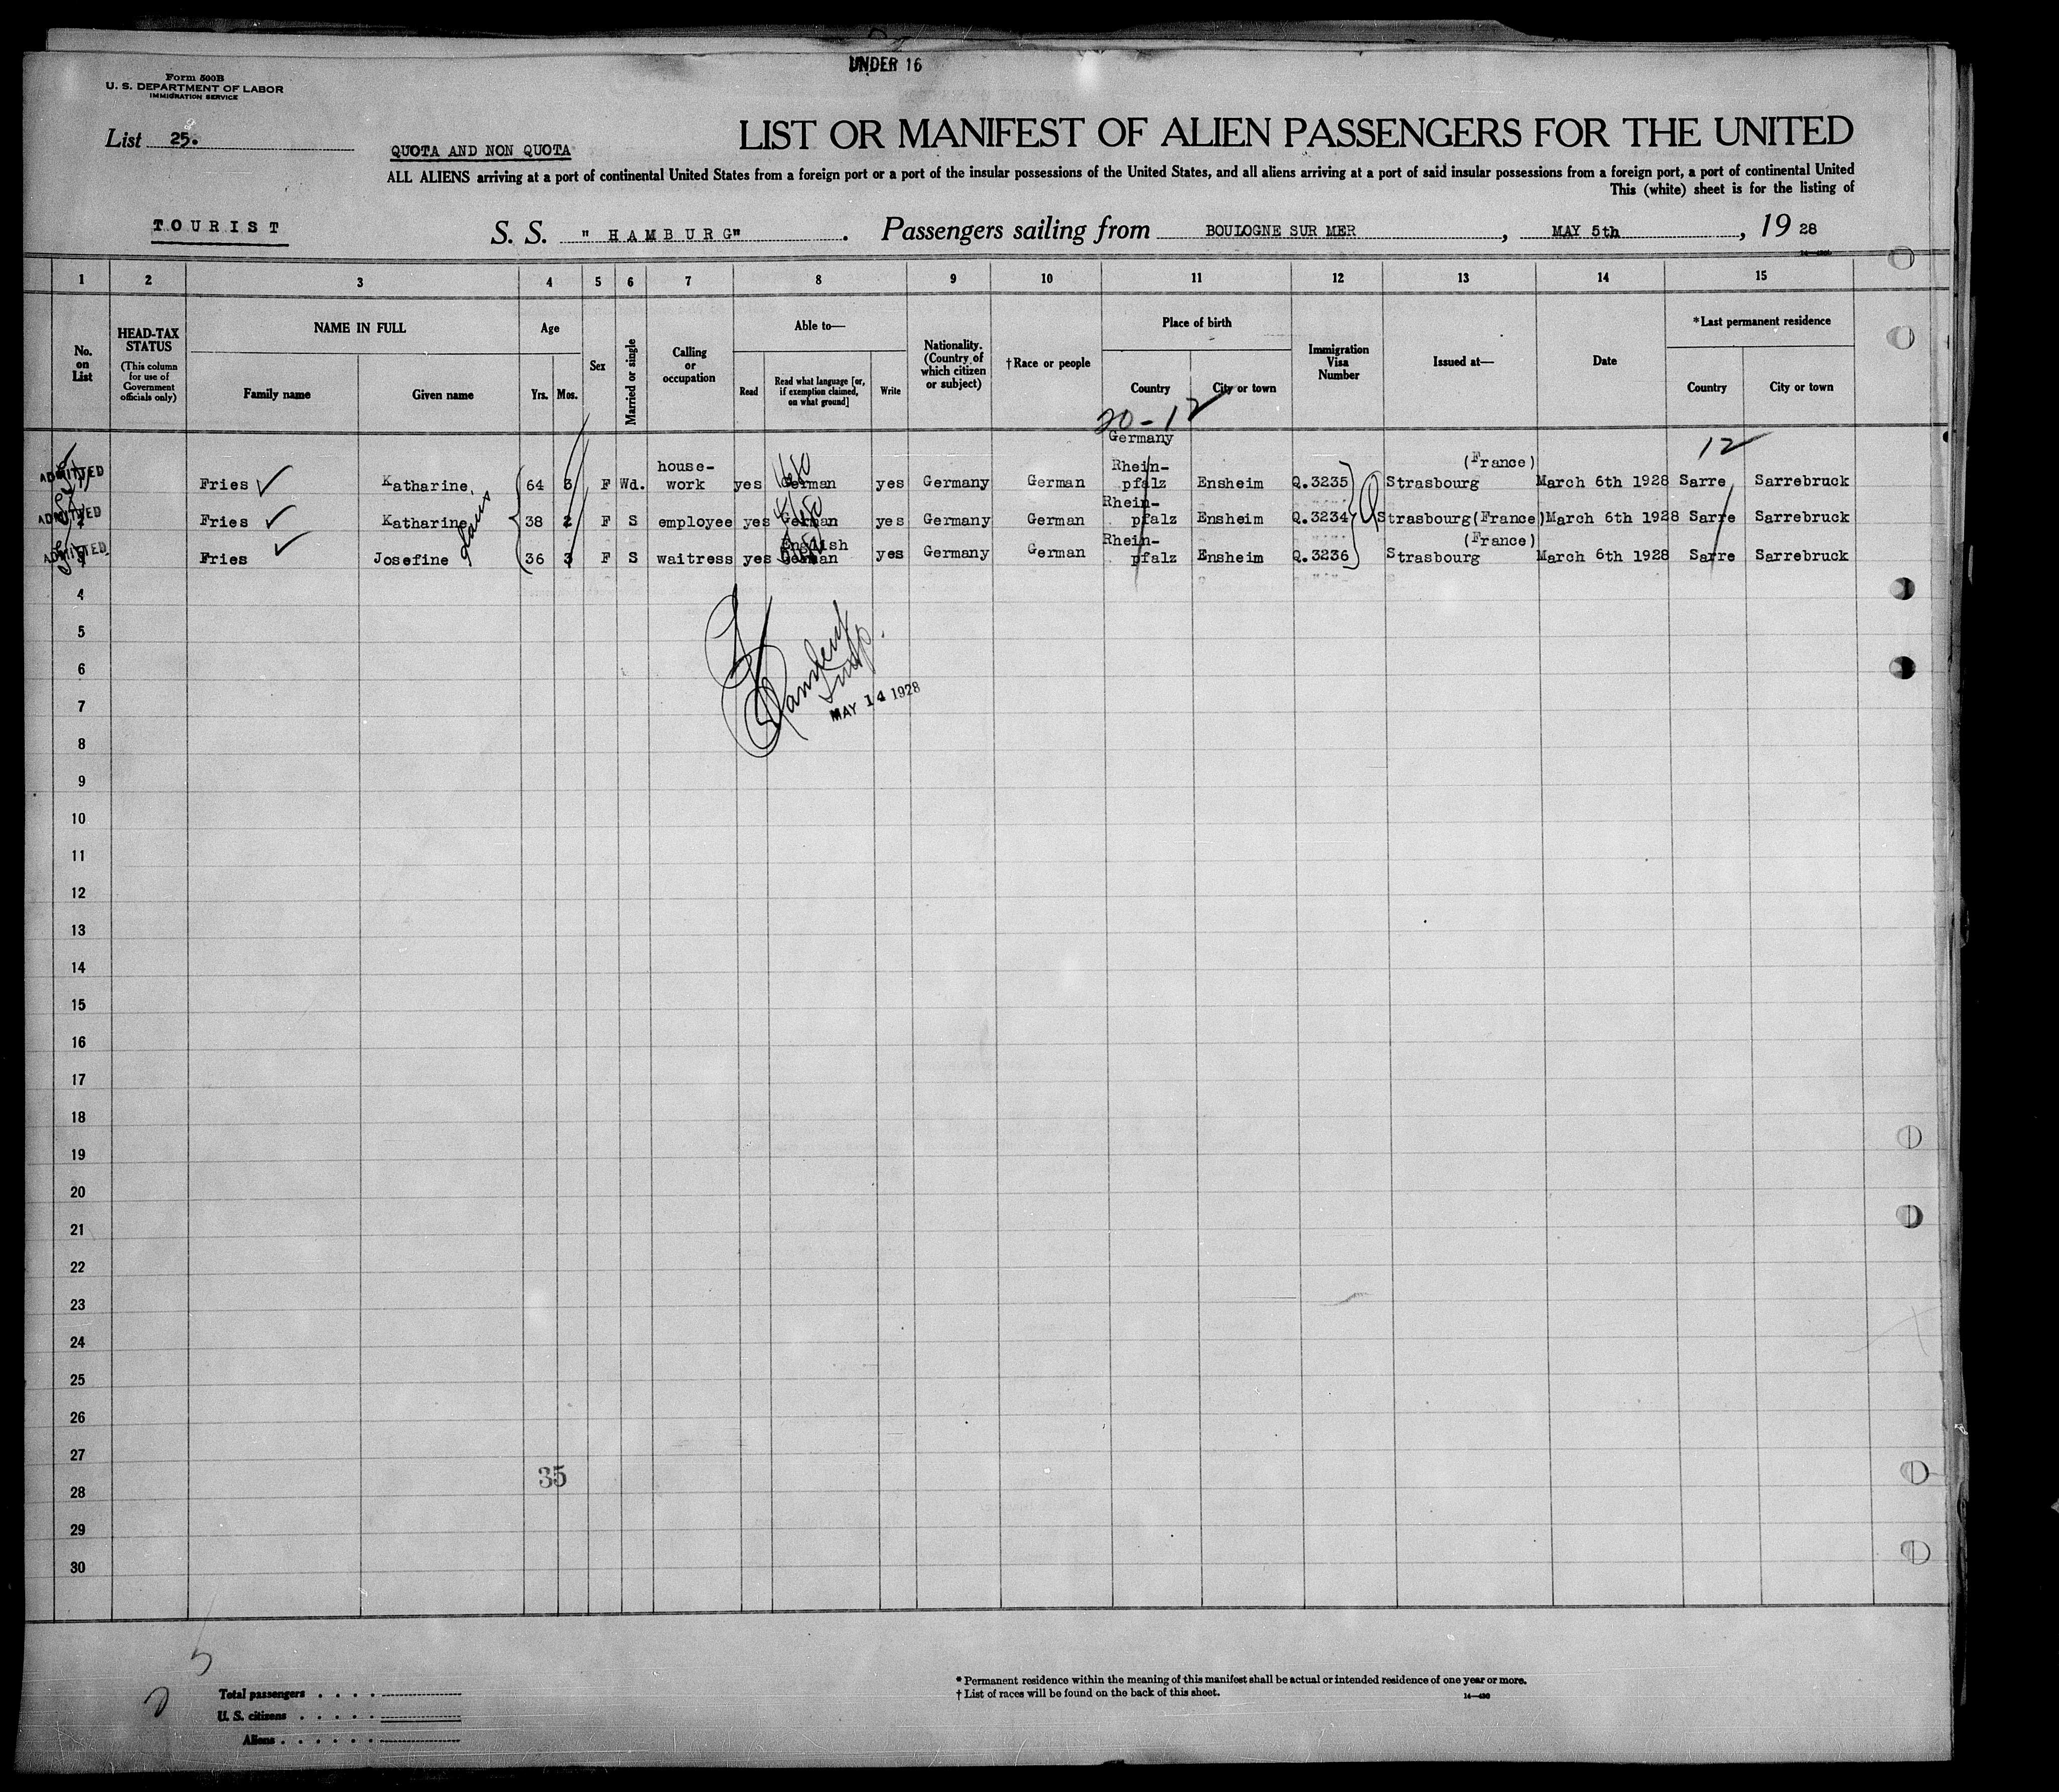 UNDER 16
Form 500B
U. S. DEPARTMENT OF LABOR
IMMIGRATION SERVICE
List 25.
QUOTA AND NON QUOTA
LIST OR MANIFEST OF ALIEN PASSENGERS FOR THE UNITED
ALL ALIENS arriving at a port of continental United States from a foreign port or a port of the insular possessions of the United States, and all aliens arriving at a port of said insular possessions from a foreign port, a port of continental United
This (white) sheet is for the listing of
TOURIST
S. S. "HAMBURG". Passengers sailing from BOULOGNE SUR MER, MAY 5th, 1928
1 2 3 4 5 6 7 8 9 10 11 12 13 14 15
No. on List
HEAD-TAX STATUS
(This column for use of Government officials only)
NAME IN FULL
Family name Given name
Age
Yrs. Mos.
Sex
Married or single
Calling or occupation
Able to—
Read
Read what language [or, if exemption claimed, on what ground]
Write
Nationality. (Country of which citizen or subject)
†Race or people
Place of birth
Country City or town
Immigration Visa Number
Issued at—
Date
*Last permanent residence
Country City or town
20-12
12
Germany
ADMITTED Fries Katharine, 64 3 F Wd. house-work yes German yes Germany German Rhein-pfalz Ensheim Q.3235 Strasbourg (France) March 6th 1928 Sarre Sarrebruck
ADMITTED 2 Fries Katharine 38 2 F S employee yes German yes Germany German Rhein-pfalz Ensheim Q.3234 Strasbourg(France) March 6th 1928 Sarre Sarrebruck
ADMITTED Fries Josefine 36 3 F S waitress yes English German yes Germany German Rhein-pfalz Ensheim Q.3236 Strasbourg (France) March 6th 1928 Sarre Sarrebruck
4
5
6
7
MAY 14 1928
8
9
10
11
12
13
14
15
16
17
18
19
20
21
22
23
24
25
26
27
35
28
29
30
Total passengers
U. S. citizens
Aliens
*Permanent residence within the meaning of this manifest shall be actual or intended residence of one year or more.
†List of races will be found on the back of this sheet.
14—430